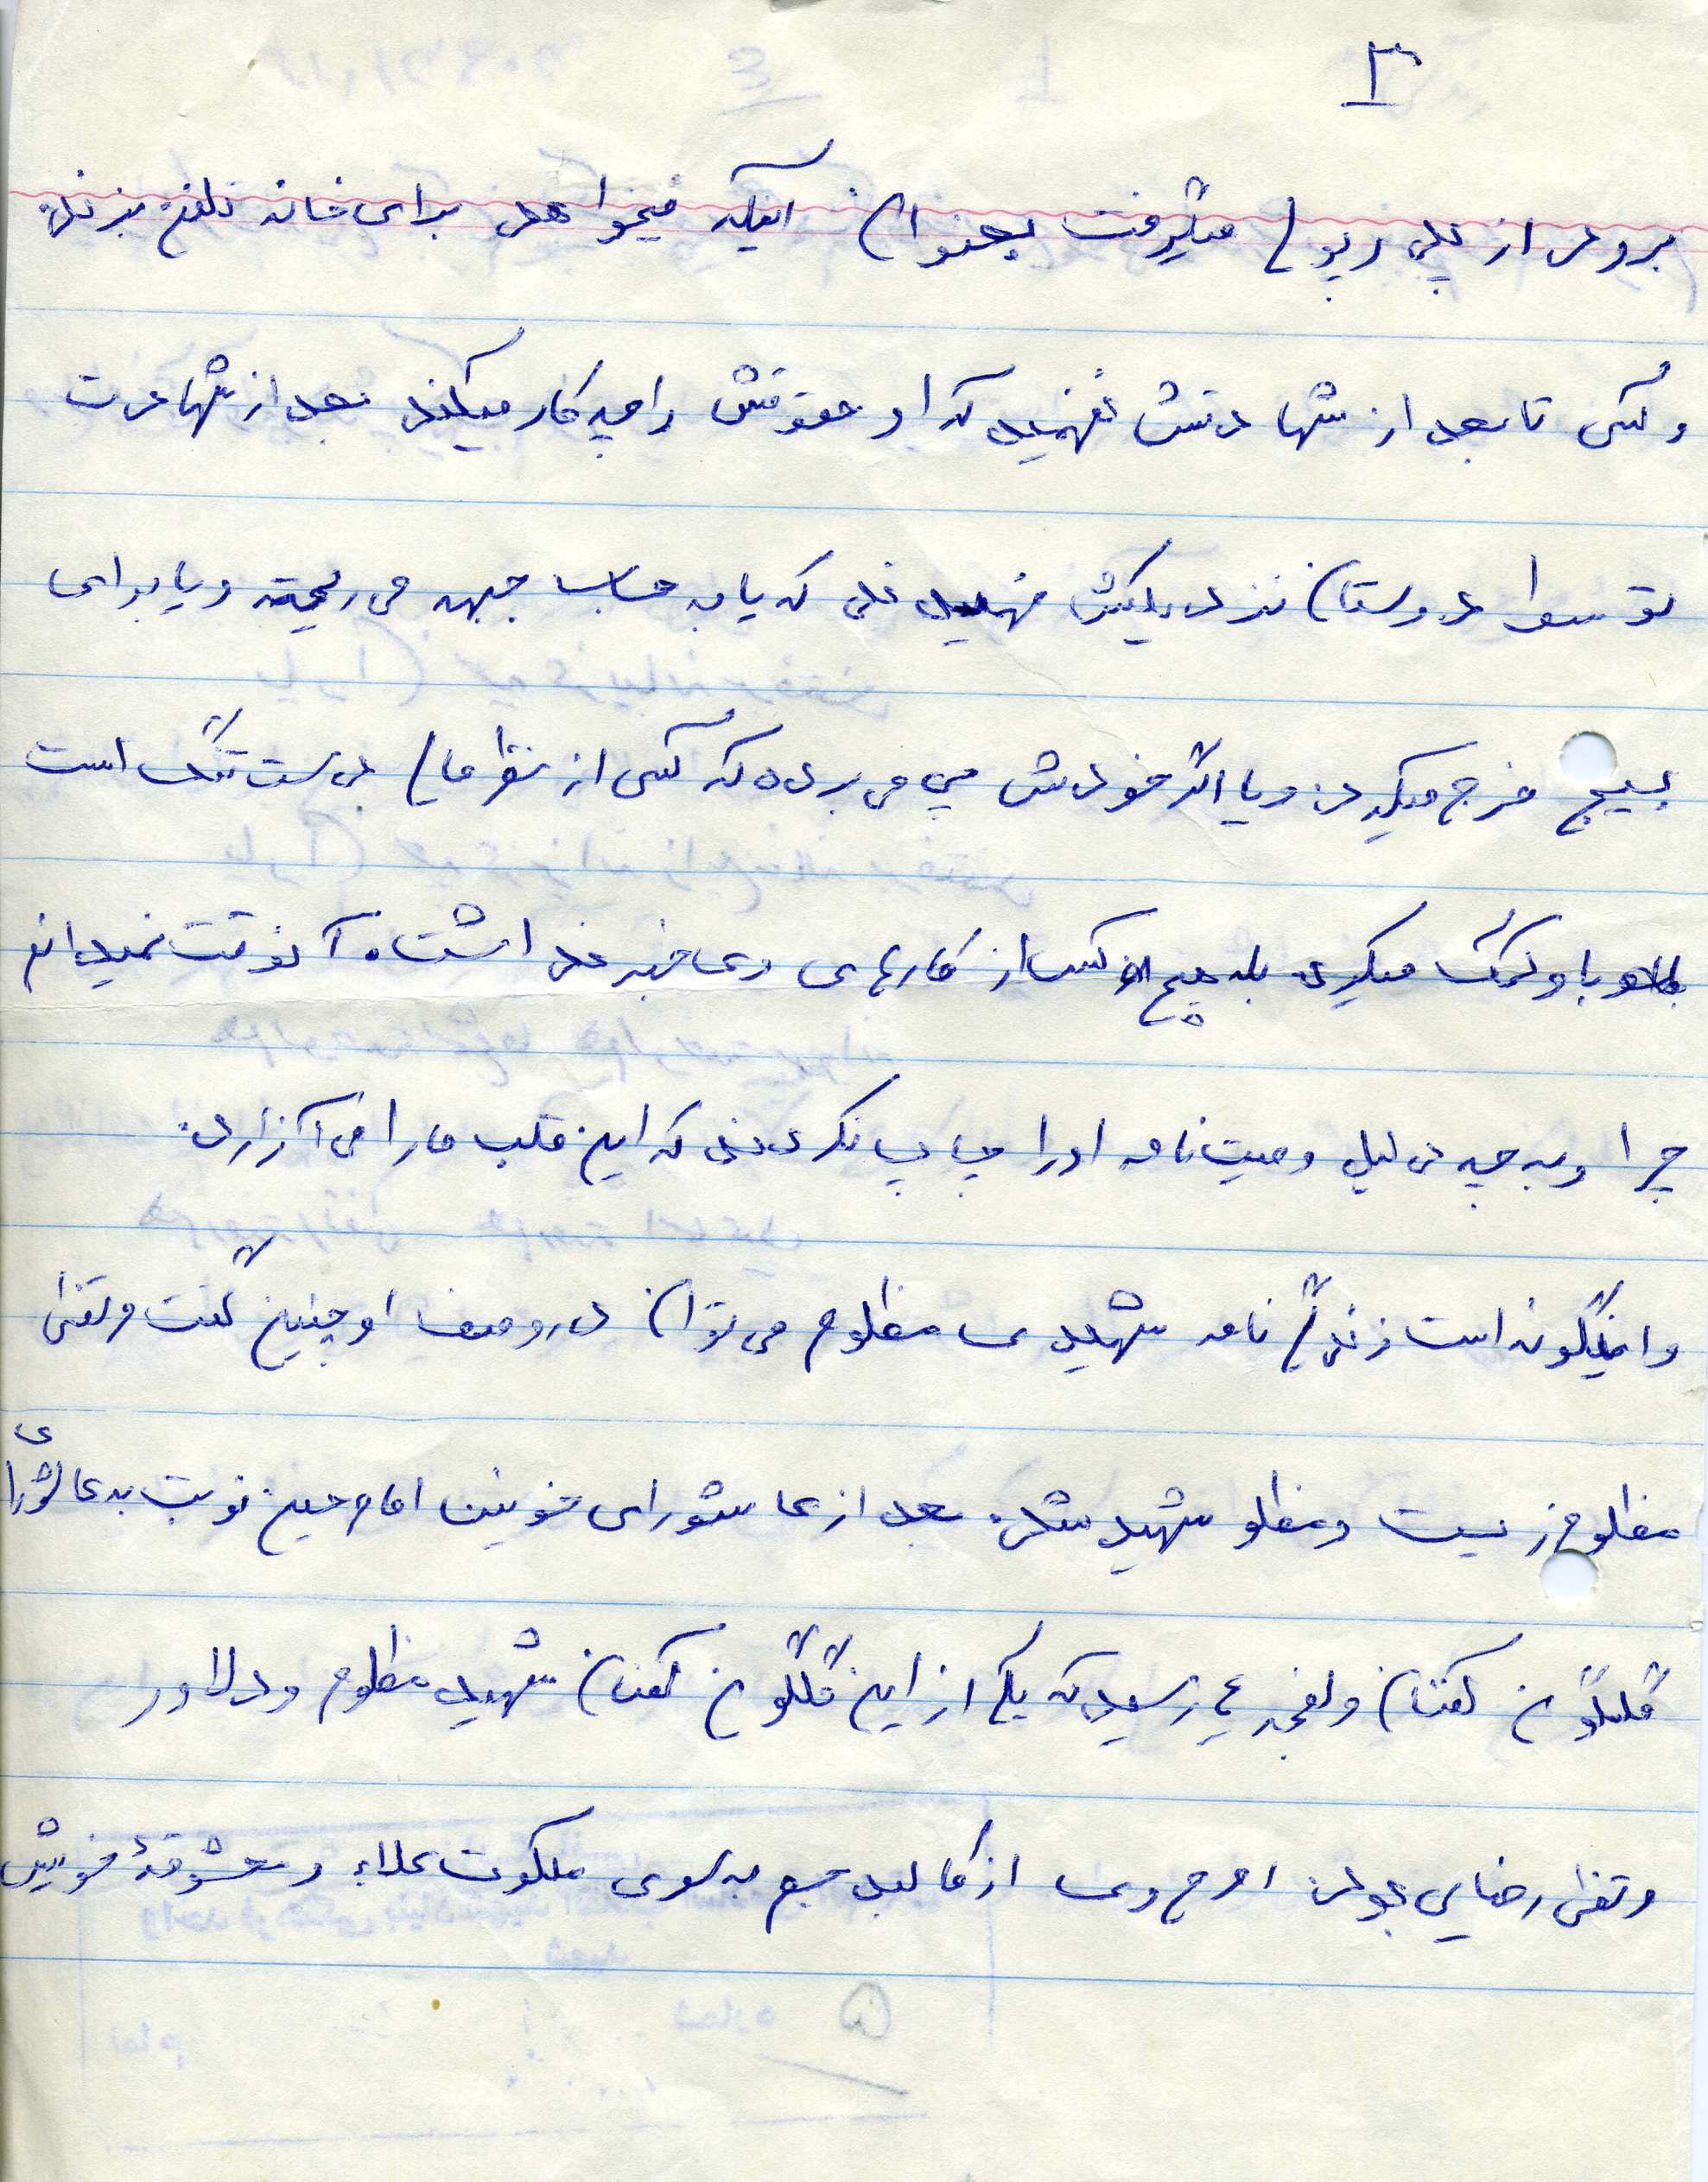 ۳
برود از پلی دیپلم میگرفت بعنوان اینکه میخواهد برای خانه تلفن بزند.
و کسی تا بعد از شهادتش نفهمید که او حقوقش را چه کار میکند بعد از شهادت
توسط دوستان نزدیکش فهمیدند که یا به حساب جبهه می ریخته و یا برای
بسیج خرج میکرد. و یا اگر خودش پی می برده که کسی از نظر مالی دست تنگ است
باو کمک میکرد بله هیچ کس از کارهای وی خبر نداشت. آنوقت نمیدانم
چرا و به چه دلیل وصیت نامه او را چاپ نکردند که این قلب ما را می آزارد.
و اینگونه است زندگی نامه شهیدی مظلوم می توان در وصف او چنین گفت مرتضی
مظلوم زیست و مظلو شهید شد. بعد از عاشورای خونین امام حسین نوبت به عاشورای
گلگون کفنان والفجر ۴ رسید که یکی از این گلگون کفنان شهید مظلوم و دلاور
مرتضی رضایی بود. روح وی از کالبد جسم به سوی ملکوت علاء و معشوقهٔ خویش